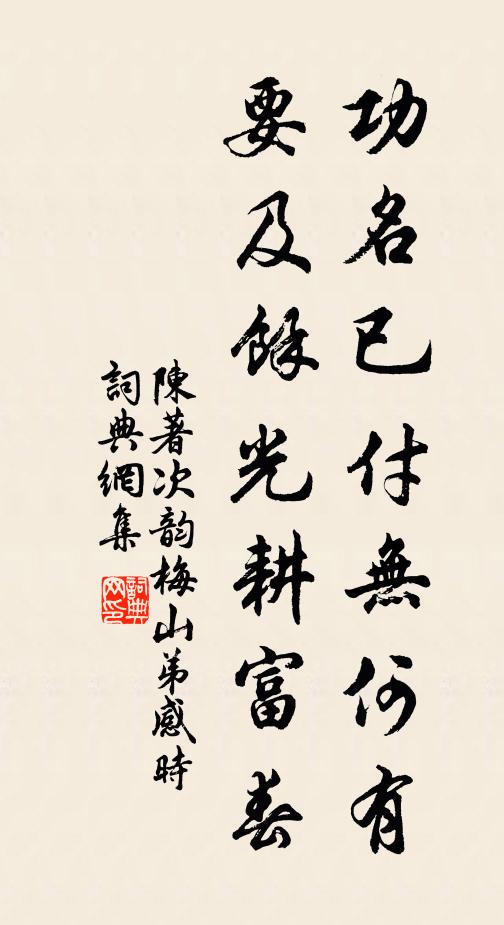 功名已付無何有
要及餘光耕富春
陳著次韵梅山弟感時
詞典網集
詞典
网印